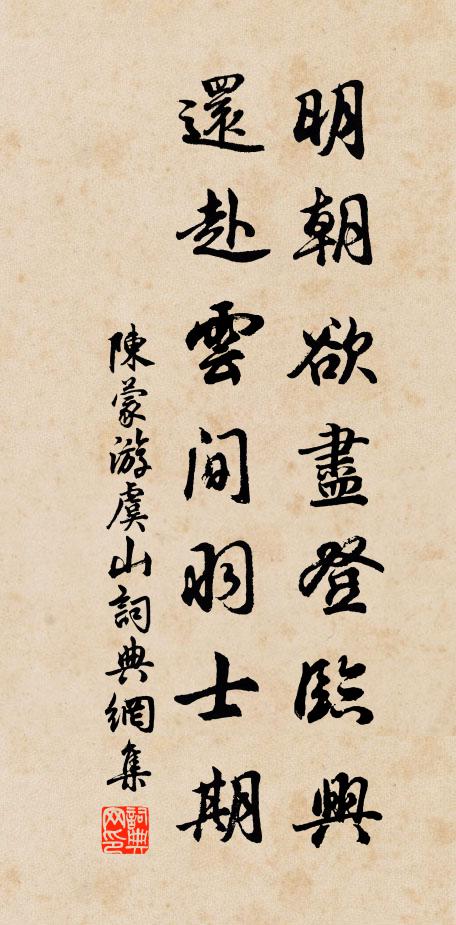 明朝欲盡登臨興
還赴雲間羽士期
陳蒙游虞山詞典網集
詞典网印